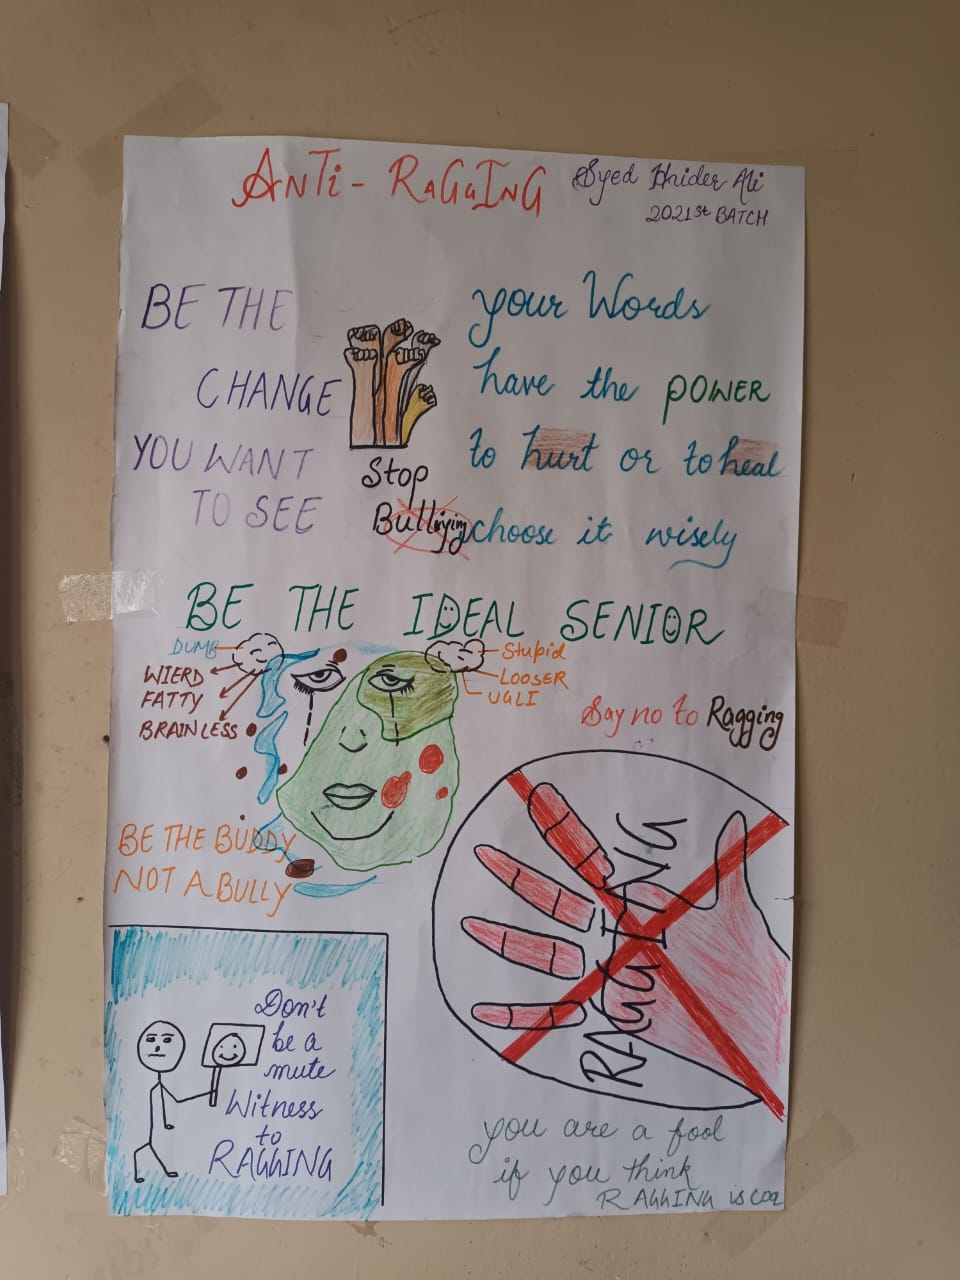 ANTi - RAGGING
Syed Haider Ali
2021st BATCH
BE THE
CHANGE
YOU WANT
TO SEE
Stop
Bullying
your Words
have the POWER
to hurt or to heal
choose it wisely
BE THE IDEAL SENIOR
DUMB
WIERD
FATTY
BRAINLESS
Stupid
LOOSER
UGLI
Say no to Ragging
BE THE BUDDY
NOT A BULLY
RAGGING
Don't
be a
mute
Witness
to
RAGGING
you are a fool
if you think
RAGGING is COOL